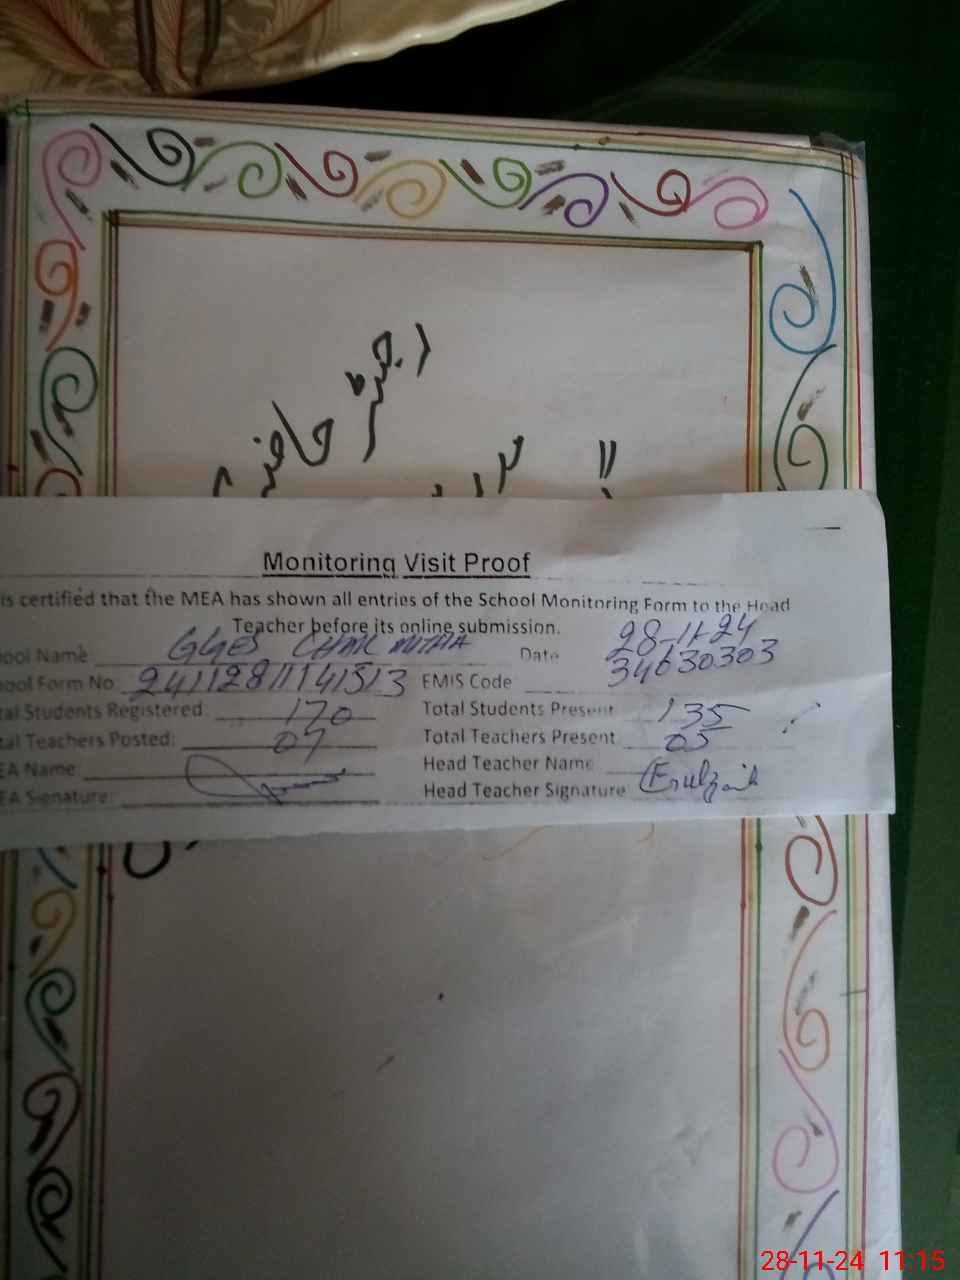 رجسٹر حاضری
Monitoring Visit Proof
is certified that the MEA has shown all entries of the School Monitoring Form to the Head
Teacher before its online submission.
ool Name GGES CHAK MITHA Date 28-11-24
ool Form No: 241128111141513 EMIS Code 34630303
tal Students Registered: 170 Total Students Present 135
tal Teachers Posted: 07 Total Teachers Present 05
EA Name: Head Teacher Name
EA Signature: Head Teacher Signature
28-11-24 11:15